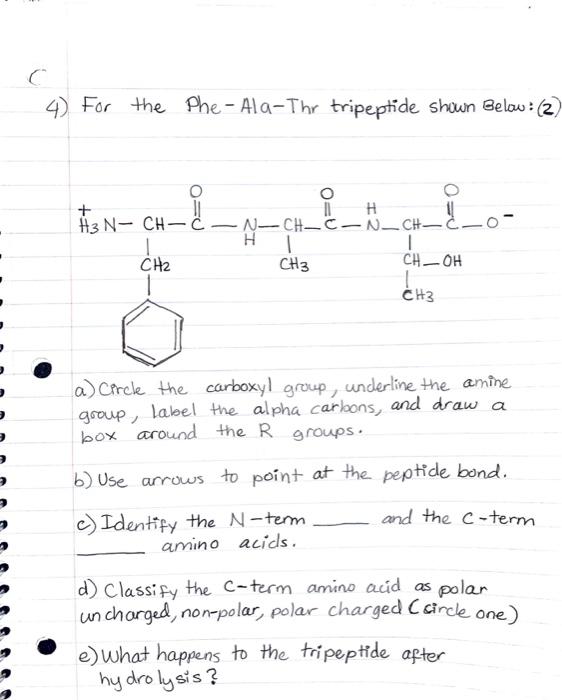 C
4) For the Phe-Ala-Thr tripeptide shown Below: (2)
O O O
+ || || H ||
H3N- CH-C-N-CH-C-N-CH-C-O-
| H | |
CH2 CH3 CH-OH
| |
CH3
a) Circle the carboxyl group, underline the amine
group, label the alpha carbons, and draw a
box around the R groups.
b) Use arrows to point at the peptide bond.
c) Identify the N-term ____ and the C-term
____ amino acids.
d) Classify the C-term amino acid as polar
uncharged, non-polar, polar charged (circle one)
e) What happens to the tripeptide after
hydrolysis?